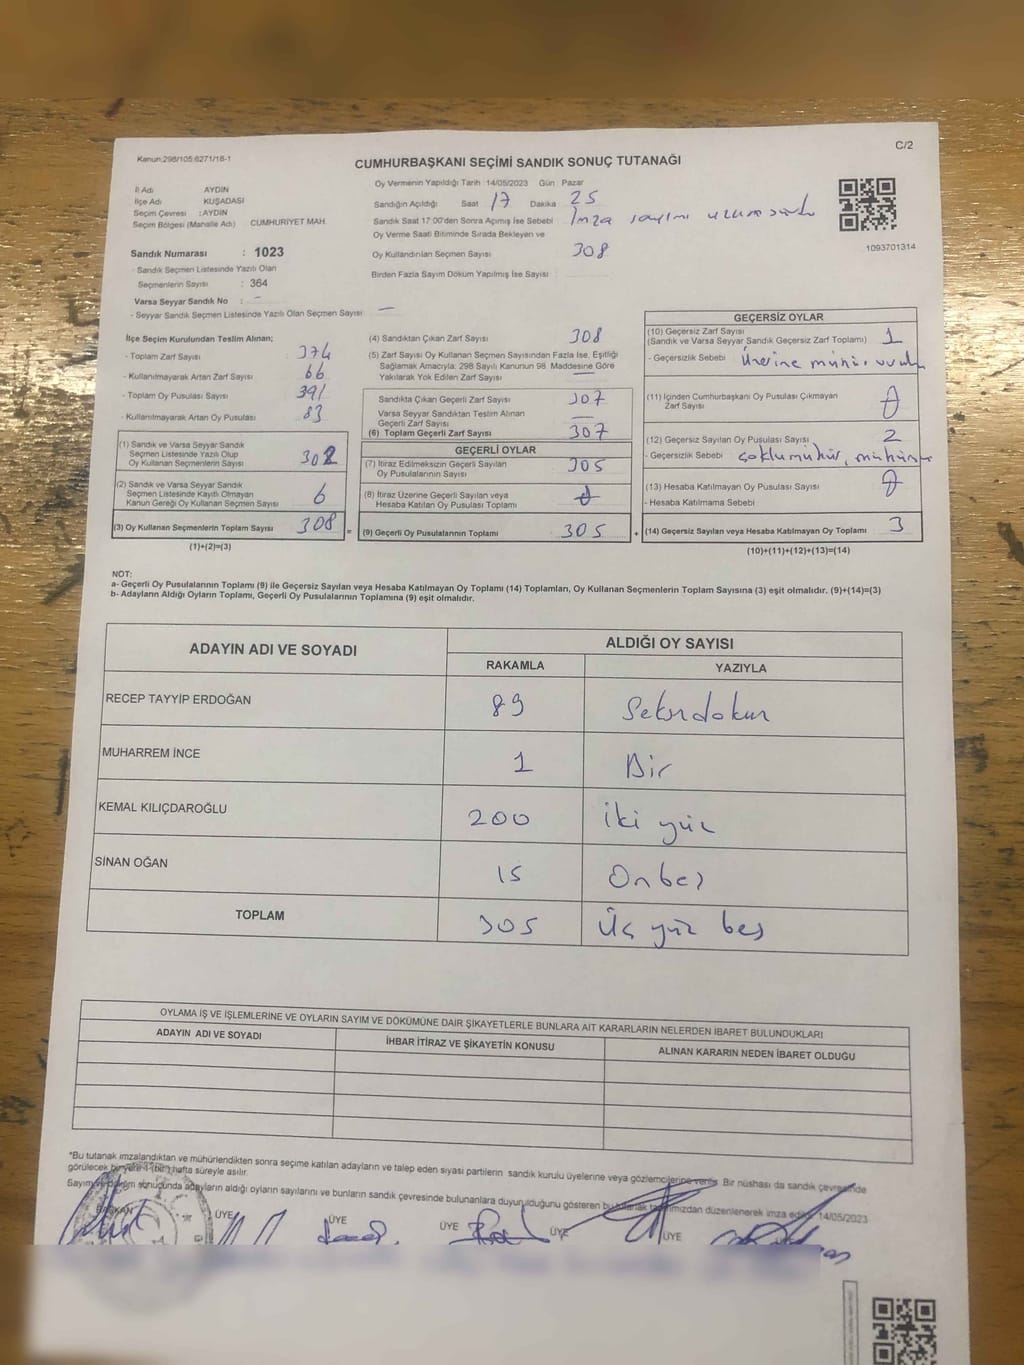 Kanun:298/105:6271/16-1
C/2
CUMHURBAŞKANI SEÇİMİ SANDIK SONUÇ TUTANAĞI
İl Adı AYDIN
İlçe Adı KUŞADASI
Seçim Çevresi :AYDIN
Seçim Bölgesi (Mahalle Adı) CUMHURİYET MAH.
Oy Vermenin Yapıldığı Tarih :14/05/2023 Gün: Pazar
Sandığın Açıldığı Saat 17 Dakika 25
Sandık Saat 17:00'den Sonra Açımış İse Sebebi İmza sayımı uzun sürdü
Oy Verme Saati Bitiminde Sırada Bekleyen ve
Oy Kullandırılan Seçmen Sayısı 308
Birden Fazla Sayım Döküm Yapılmış İse Sayısı :
1093701314
Sandık Numarası : 1023
- Sandık Seçmen Listesinde Yazılı Olan
Seçmenlerin Sayısı : 364
Varsa Seyyar Sandık No : -
- Seyyar Sandık Seçmen Listesinde Yazılı Olan Seçmen Sayısı —
İlçe Seçim Kurulundan Teslim Alınan;
- Toplam Zarf Sayısı 374
- Kullanılmayarak Artan Zarf Sayısı 66
- Toplam Oy Pusulası Sayısı 391
- Kullanılmayarak Artan Oy Pusulası 83
(1) Sandık ve Varsa Seyyar Sandık
Seçmen Listesinde Yazılı Olup
Oy Kullanan Seçmenlerin Sayısı 302
(2) Sandık ve Varsa Seyyar Sandık
Seçmen Listesinde Kayıtlı Olmayan
Kanun Gereği Oy Kullanan Seçmen Sayısı 6
(3) Oy Kullanan Seçmenlerin Toplam Sayısı 308 =
(1)+(2)=(3)
(4) Sandıktan Çıkan Zarf Sayısı 308
(5) Zarf Sayısı Oy Kullanan Seçmen Sayısından Fazla İse, Eşitliği
Sağlamak Amacıyla; 298 Sayılı Kanunun 98. Maddesine Göre
Yakılarak Yok Edilen Zarf Sayısı —
Sandıkta Çıkan Geçerli Zarf Sayısı 307
Varsa Seyyar Sandıktan Teslim Alınan
Geçerli Zarf Sayısı —
(6) Toplam Geçerli Zarf Sayısı 307
GEÇERLİ OYLAR
(7) İtiraz Edilmeksizin Geçerli Sayılan
Oy Pusulalarının Sayısı 305
(8) İtiraz Üzerine Geçerli Sayılan veya
Hesaba Katılan Oy Pusulası Toplamı 0
(9) Geçerli Oy Pusulalarının Toplamı 305 +
GEÇERSİZ OYLAR
(10) Geçersiz Zarf Sayısı
(Sandık ve Varsa Seyyar Sandık Geçersiz Zarf Toplamı) 1
- Geçersizlik Sebebi Üzerine mühür
(11) İçinden Cumhurbaşkanı Oy Pusulası Çıkmayan
Zarf Sayısı 0
(12) Geçersiz Sayılan Oy Pusulası Sayısı 2
- Geçersizlik Sebebi çoklu mühür,
(13) Hesaba Katılmayan Oy Pusulası Sayısı 0
- Hesaba Katılmama Sebebi
(14) Geçersiz Sayılan veya Hesaba Katılmayan Oy Toplamı 3
(10)+(11)+(12)+(13)=(14)
NOT:
a- Geçerli Oy Pusulalarının Toplamı (9) ile Geçersiz Sayılan veya Hesaba Katılmayan Oy Toplamı (14) Toplamları, Oy Kullanan Seçmenlerin Toplam Sayısına (3) eşit olmalıdır. (9)+(14)=(3)
b- Adayların Aldığı Oyların Toplamı, Geçerli Oy Pusulalarının Toplamına (9) eşit olmalıdır.
ADAYIN ADI VE SOYADI ALDIĞI OY SAYISI
RAKAMLA YAZIYLA
RECEP TAYYİP ERDOĞAN 89 Seksndokuz
MUHARREM İNCE 1 Bir
KEMAL KILIÇDAROĞLU 200 iki yüz
SİNAN OĞAN 15 Onbeş
TOPLAM 305 Üç yüz beş
OYLAMA İŞ VE İŞLEMLERİNE VE OYLARIN SAYIM VE DÖKÜMÜNE DAİR ŞİKAYETLERLE BUNLARA AİT KARARLARIN NELERDEN İBARET BULUNDUKLARI
ADAYIN ADI VE SOYADI İHBAR İTİRAZ VE ŞİKAYETİN KONUSU ALINAN KARARIN NEDEN İBARET OLDUĞU
*Bu tutanak imzalandıktan ve mühürlendikten sonra seçime katılan adayların ve talep eden siyasi partilerin sandık kurulu üyelerine veya gözlemcilerine verilir. Bir nüshası da sandık çevresinde
görülecek bir yere 1 (bir) hafta süreyle asılır.
Sayım ve döküm sonucunda adayların aldığı oyların sayılarını ve bunların sandık çevresinde bulunanlara duyurulduğunu gösteren bu tutanak tarafımızdan düzenlenerek imza edildi. 14/05/2023
BAŞKAN ÜYE ÜYE ÜYE ÜYE ÜYE